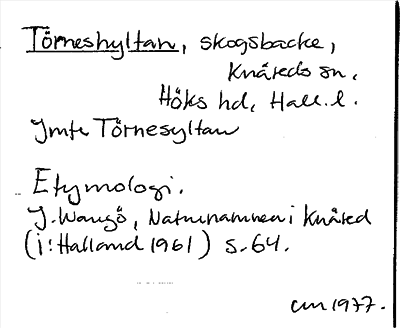 Törneshyltan, skogsbacke,
Knäreds sn,
Höks hd, Hall. l.
Jmfr Törnesyltan
Etymologi.
J. Wangö, Naturnamnen i Knäred
(i: Halland 1961) s. 64.
cm 1977.